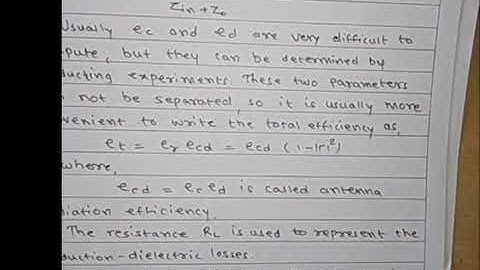 Zin + Zo
Usually ec and ed are very difficult to
pute, but they can be determined by
ducting experiments. These two parameters
not be separated so it is usually more
venient to write the total efficiency as,
et = er ecd = ecd (1-|Γ|²)
where,
ecd = ec ed is called antenna
diation efficiency.
The resistance RL is used to represent the
duction-dielectric losses.